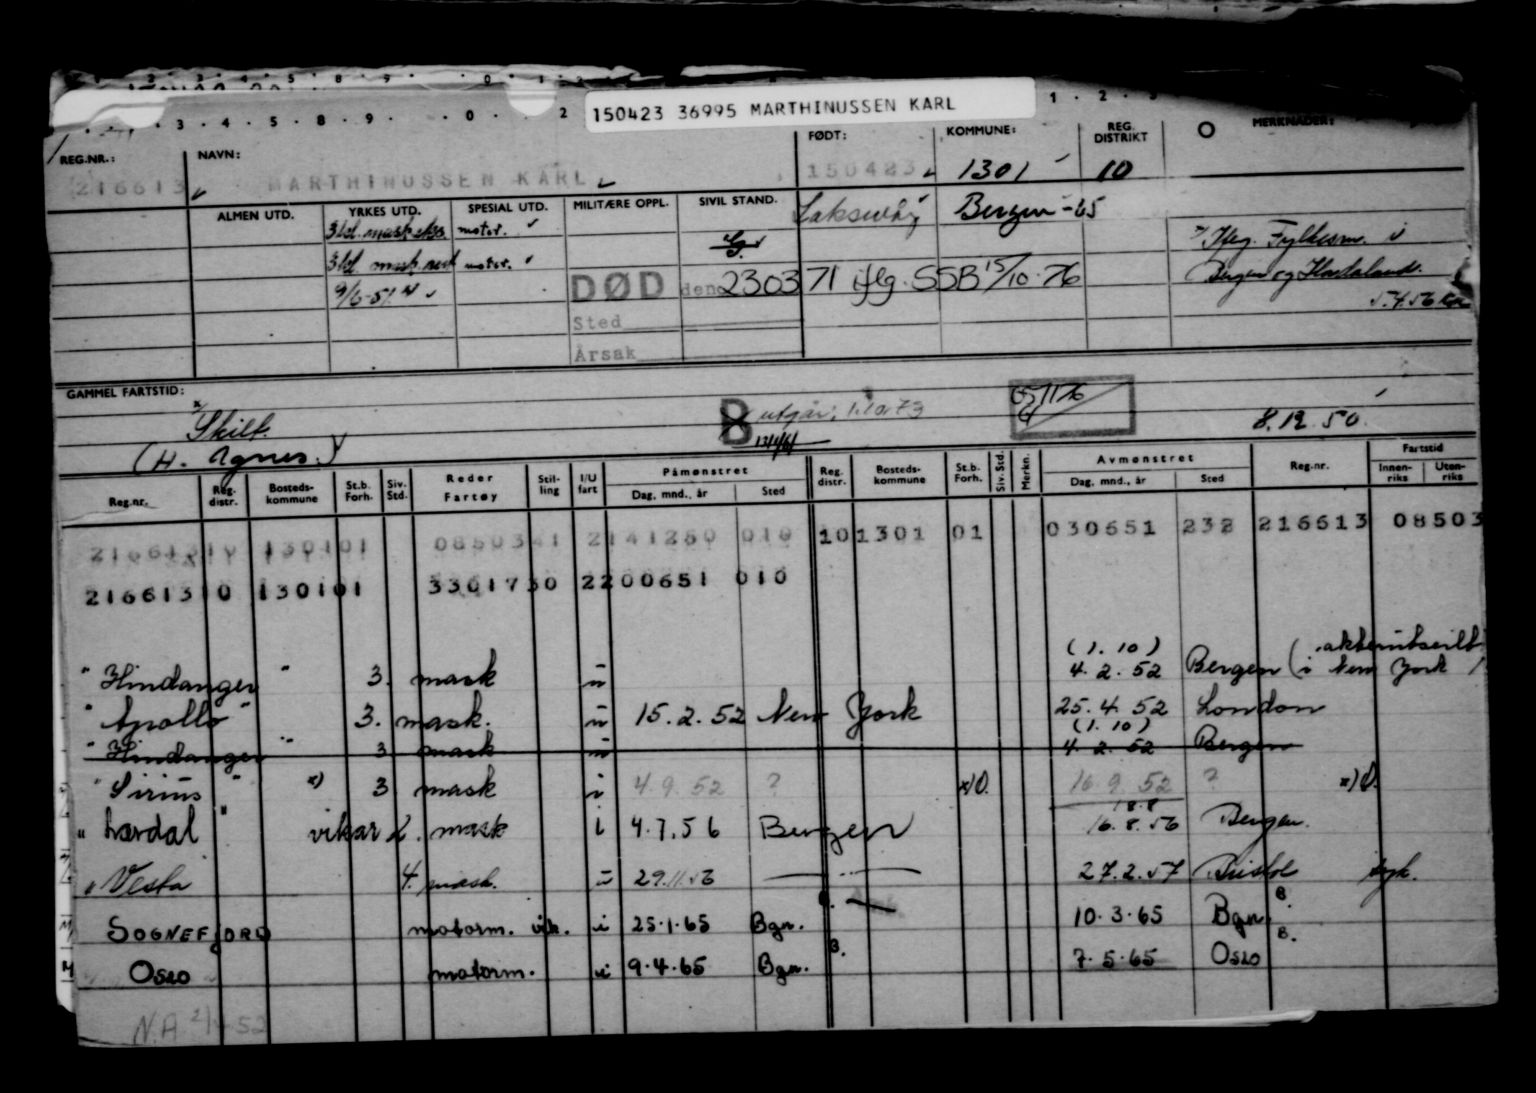 150423 36995 MARTHINUSSEN KARL
REG.NR.: NAVN: FØDT: KOMMUNE: REG. DISTRIKT MERKNADER:
216613 MARTHINUSSEN KARL 150423 1301 10
ALMEN UTD. YRKES UTD. SPESIAL UTD. MILITÆRE OPPL. SIVIL STAND. Bergen -65
3 kl. mask. motor.
3 kl. mask motor.
9/6-51
DØD den 230371 iflg. SSB 15/10-76
Sted
Årsak
Iflg. Fylkesm. i
Bergen og Hordaland.
5.4.56
GAMMEL FARTSTID:
x Skilt.
(H. Agnes.)
B utgår: 1.10.73
8.12.50.
Reg.nr. Reg. distr. Bosteds- kommune St.b. Forh. Siv. Std. Reder Fartøy Stil- ling I/U fart Påmønstret Dag, mnd., år Sted Reg. distr. Bosteds- kommune St.b. Forh. Siv. Std. Merkn. Avmønstret Dag, mnd., år Sted Reg.nr. Fartstid Innen- riks Uten- riks
216613 10 1301 01 0850341 2 141250 010 10 1301 01 030651 232 216613 08503
216613 10 1301 01 3301730 2 200651 010
" Hindanger " 3. mask u (1.10) 4.2.52 Bergen (i New York
" Apollo " 3. mask. u 15.2.52 New York 25.4.52 London
" Hindanger " 3 mask u (1.10) 4.2.52 Bergen
" Sirius " x) 3 mask i 4.9.52 ? x)0. 16.9.52 ? x)0.
" Lærdal " vikar 2. mask i 4.7.56 Bergen 18.8 16.8.56 Bergen.
" Vesta 4. mask. u 29.11.56 — " — 27.2.57 Bristol syk.
SOGNEFJORD motorm. vik. i 25.1.65 Bgn. 10.3.65 Bgn. B.
OSLO motorm. i 9.4.65 Bgn. B. 7.5.65 OSLO B.
N.A